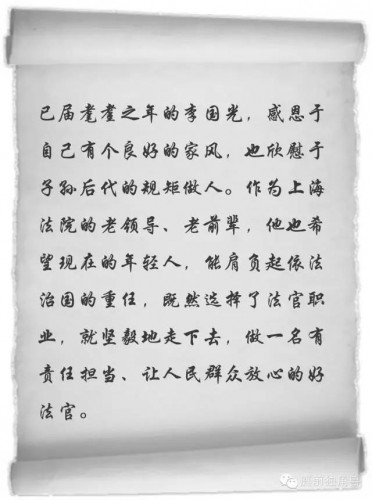 已届耄耋之年的李国光，感恩于
自己有个良好的家风，也欣慰于
子孙后代的规矩做人。作为上海
法院的老领导、老前辈，他也希
望现在的年轻人，能肩负起依法
治国的重任，既然选择了法官职
业，就坚毅地走下去，做一名有
责任担当、让人民群众放心的好
法官。